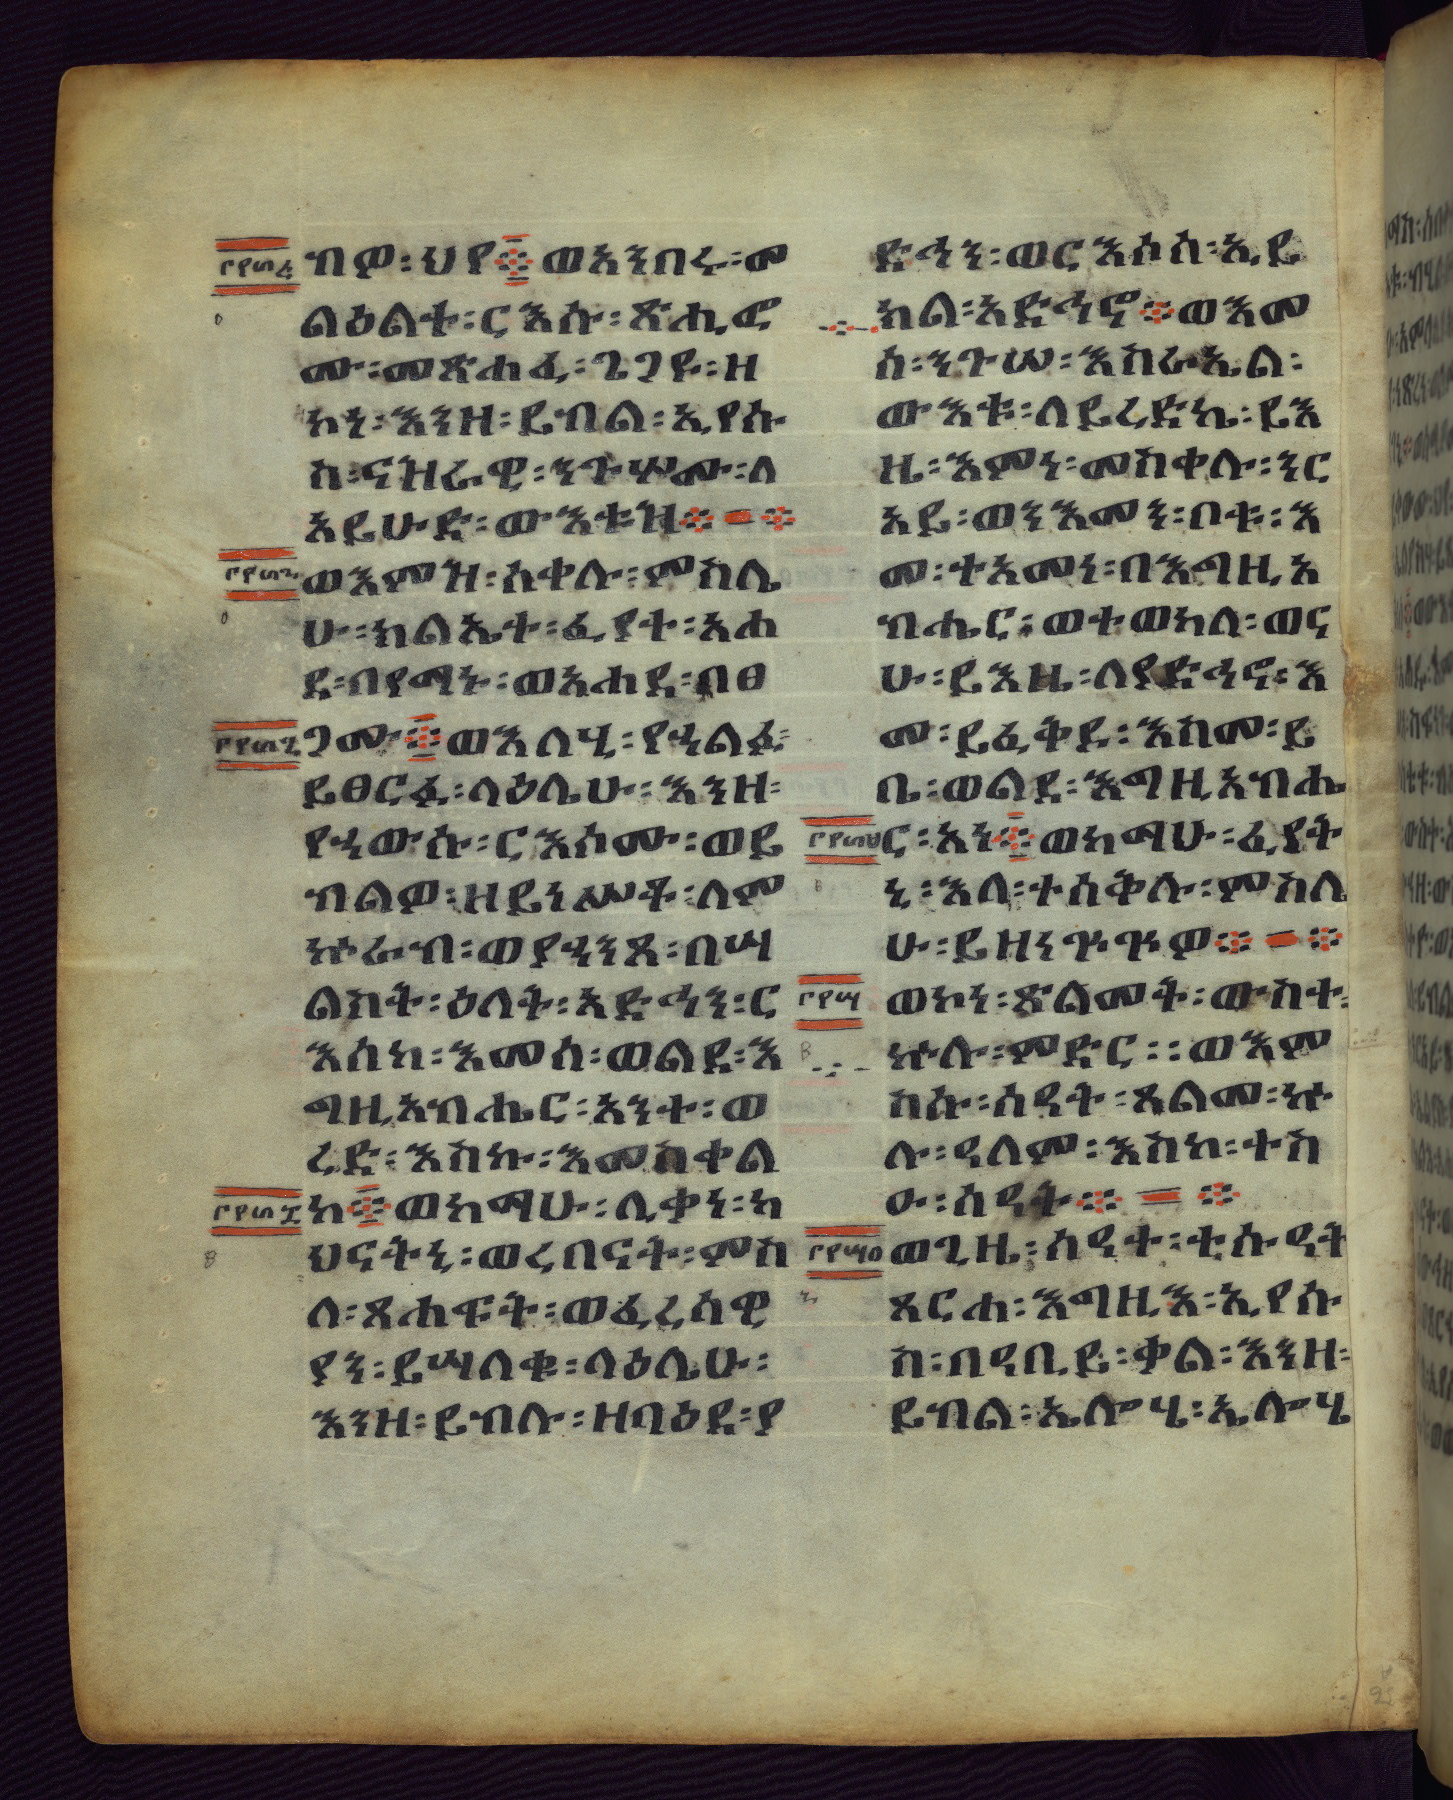 ብዎ፡ህየ፨ወአንበሩ፡መ
ልዕልተ፡ርእሱ፡ጽሒፎ
ሙ፡መጽሐፈ፡ጌጋዩ፡ዘ
ከነ፡እንዘ፡ይብል፡ኢየሱ
ስ፡ናዝራዊ፡ንጉሦሙ፡ለ
አይሁድ፡ውእቱዝ፨፨
ወእምዝ፡ሰቀሉ፡ምስሌ
ሁ፡ክልኤተ፡ፈያተ፡አሐ
ደ፡በየማኑ፡ወአሐደ፡በፀ
ጋሙ፨ወእለሂ፡የኃልፉ፡
ይፀርፉ፡ላዕሌሁ፡እንዘ፡
የኃውሱ፡ርእሰሙ፡ወይ
ብልዎ፡ዘይነሥቶ፡ለም
ኵራብ፡ወያኃንጾ፡በሣ
ልስት፡ዕለት፡አድኅን፡ር
እሰከ፡እመሰ፡ወልደ፡እ
ግዚአብሔር፡አንተ፡ወ
ረድ፡እስኩ፡እመስቀል
ከ፨ወከማሁ፡ሊቃነ፡ካ
ህናትኒ፡ወረበናት፡ምስ
ለ፡ጸሐፍት፡ወፈሪሳዊ
ያን፡ይሣለቁ፡ላዕሌሁ፡
እንዘ፡ይብሉ፡ዘባዕደ፡ያ
ድኅን፡ወርእሰሰ፡ኢይ
ክል፡አድኅኖ፨ወእመ
ሰ፡ንጉሠ፡እስራኤል፡
ውእቱ፡ለይረድኬ፡ይእ
ዜ፡እምነ፡መስቀሉ፡ንር
አይ፡ወንእመን፡ቦቱ፡እ
መ፡ተአመነ፡በእግዚአ
ብሔር፡ወተወከለ፡ወና
ሁ፡ይእዜ፡ለያድኅኖ፡እ
መ፡ይፈቅዶ፡እስመ፡ይ
ቤ፡ወልደ፡እግዚአብሔ
ር፡አነ፨ወከማሁ፡ፈያት
ኒ፡እለ፡ተሰቅሉ፡ምስለ
ሁ፡ይዘነጕጕዎ፨፨
ወኮነ፡ጽልመት፡ውስተ፡
ኵሉ፡ምድር፡፡ወእም
ከሱ፡ሰዓት፡ጸልመ፡ኵ
ሉ፡ዓለም፡እስከ፡ተስ
ዑ፡ሰዓት፨፨
ወጊዜ፡ሰዓተ፡ቲሱዓት
ጸርሐ፡እግዚእ፡ኢየሱ
ስ፡በዓቢይ፡ቃል፡እንዘ፡
ይብል፡ኤሎሄ፡ኤሎሄ